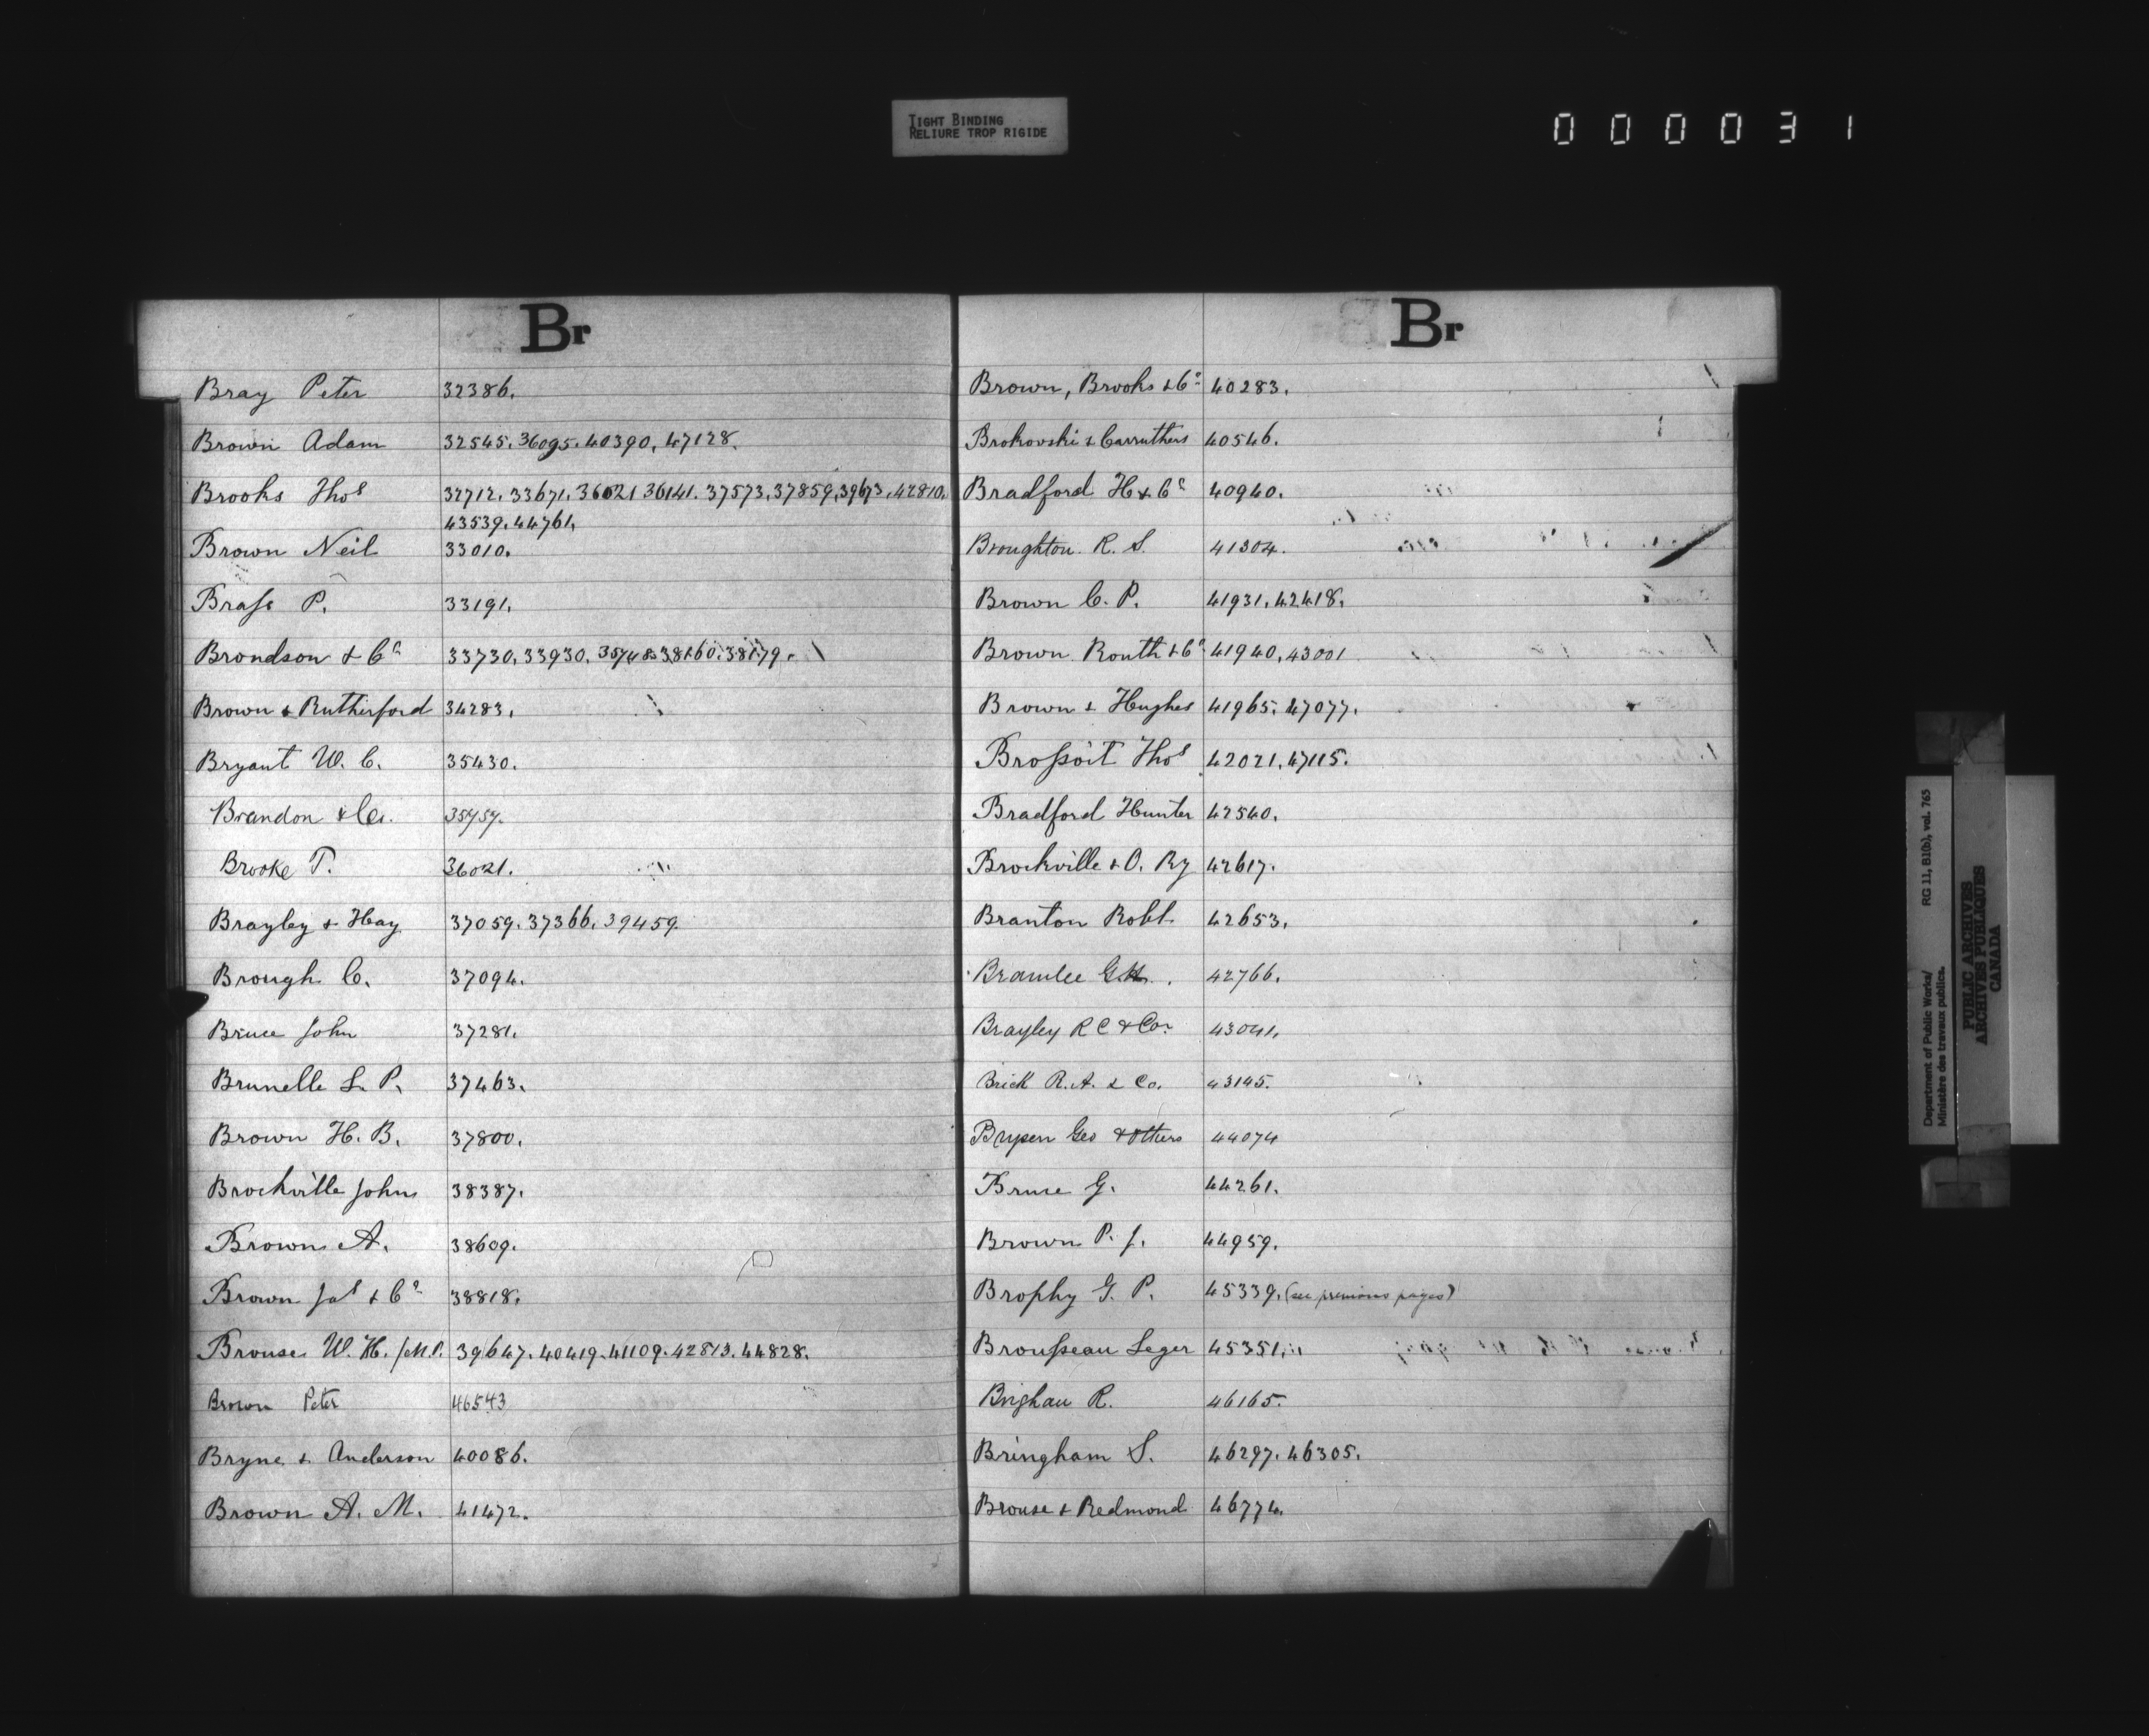 TIGHT BINDING
RELIURE TROP RIGIDE
000031
Br
Bray Peter 32386.
Brown Adam 32545. 36095. 40390, 47128.
Brooks Thos 32712. 33671. 36021 36141. 37573. 37859. 39673. 42810.
43539. 44761.
Brown Neil 33010.
Brass P. 33191.
Brondson & Co 33730. 33930. 35748. 38160. 38179.
Brown & Rutherford 34283.
Bryant W. C. 35430.
Brandon & Co. 35757.
Brooke T. 36021.
Brayley & Hay 37059. 37366. 39459.
Brough C. 37094.
Bruce John 37281.
Brunelle L. P. 37463.
Brown H. B. 37800.
Brockville Johns 38387.
Brown A. 38609.
Brown Jas & Co 38818.
Brouse W. H. /M.P. 39647. 40419. 41109. 42813. 44828.
Brown Peter 46543
Bryne & Anderson 40086.
Brown A. M. 41472.
Br
Brown, Brooks & Co 40283.
Brokovski & Carruthers 40546.
Bradford H & Co 40940.
Broughton R. S. 41304.
Brown C. P. 41931. 42418.
Brown Routh & Co 41940, 43001
Brown & Hughes 41965. 47077.
Brossoit Thos 42021. 47115.
Bradford Hunter 42540.
Brockville & O. Ry 42617.
Branton Robt. 42653.
Bramlee G.H. 42766.
Brayley R C & Co. 43041.
Brick R. A. & Co. 43145.
Geo & others 44074
Bruce G. 44261.
Brown P. J. 44959.
Brophy G. P. 45339. (see previous pages)
Brousseau Leger 45351.
Brighau R. 46165.
Bringham S. 46297. 46305.
Brouse & Redmond 46774.
Department of Public Works/ RG 11, B1(b), vol. 763
Ministère des travaux publics.
PUBLIC ARCHIVES
ARCHIVES PUBLIQUES
CANADA